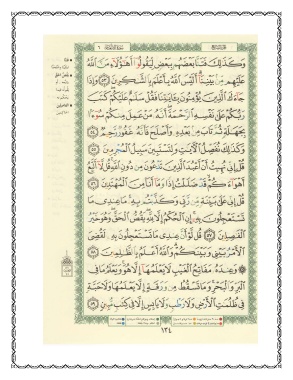 وَكَذَٰلِكَ فَتَنَّا بَعْضَهُم بِبَعْضٍ لِّيَقُولُوٓا۟ أَهَٰٓؤُلَآءِ مَنَّ ٱللَّهُ
عَلَيْهِم مِّنۢ بَيْنِنَآ أَلَيْسَ ٱللَّهُ بِأَعْلَمَ بِٱلشَّٰكِرِينَ ٥٣ وَإِذَا
جَآءَكَ ٱلَّذِينَ يُؤْمِنُونَ بِـَٔايَٰتِنَا فَقُلْ سَلَٰمٌ عَلَيْكُمْ كَتَبَ
رَبُّكُمْ عَلَىٰ نَفْسِهِ ٱلرَّحْمَةَ أَنَّهُۥ مَنْ عَمِلَ مِنكُمْ سُوٓءًۢا
بِجَهَٰلَةٍ ثُمَّ تَابَ مِنۢ بَعْدِهِۦ وَأَصْلَحَ فَأَنَّهُۥ غَفُورٌ رَّحِيمٌ ٥٤
وَكَذَٰلِكَ نُفَصِّلُ ٱلْـَٔايَٰتِ وَلِتَسْتَبِينَ سَبِيلُ ٱلْمُجْرِمِينَ ٥٥
قُلْ إِنِّى نُهِيتُ أَنْ أَعْبُدَ ٱلَّذِينَ تَدْعُونَ مِن دُونِ ٱللَّهِ قُل لَّآ أَتَّبِعُ
أَهْوَآءَكُمْ قَدْ ضَلَلْتُ إِذًا وَمَآ أَنَا۠ مِنَ ٱلْمُهْتَدِينَ ٥٦
قُلْ إِنِّى عَلَىٰ بَيِّنَةٍ مِّن رَّبِّى وَكَذَّبْتُم بِهِۦ مَا عِندِى مَا
تَسْتَعْجِلُونَ بِهِۦٓ إِنِ ٱلْحُكْمُ إِلَّا لِلَّهِ يَقُصُّ ٱلْحَقَّ وَهُوَ خَيْرُ
ٱلْفَٰصِلِينَ ٥٧ قُل لَّوْ أَنَّ عِندِى مَا تَسْتَعْجِلُونَ بِهِۦ لَقُضِىَ
ٱلْأَمْرُ بَيْنِى وَبَيْنَكُمْ وَٱللَّهُ أَعْلَمُ بِٱلظَّٰلِمِينَ ٥٨
وَعِندَهُۥ مَفَاتِحُ ٱلْغَيْبِ لَا يَعْلَمُهَآ إِلَّا هُوَ وَيَعْلَمُ مَا فِى
ٱلْبَرِّ وَٱلْبَحْرِ وَمَا تَسْقُطُ مِن وَرَقَةٍ إِلَّا يَعْلَمُهَا وَلَا حَبَّةٍ
فِى ظُلُمَٰتِ ٱلْأَرْضِ وَلَا رَطْبٍ وَلَا يَابِسٍ إِلَّا فِى كِتَٰبٍ مُّبِينٍ ٥٩
١٣٤